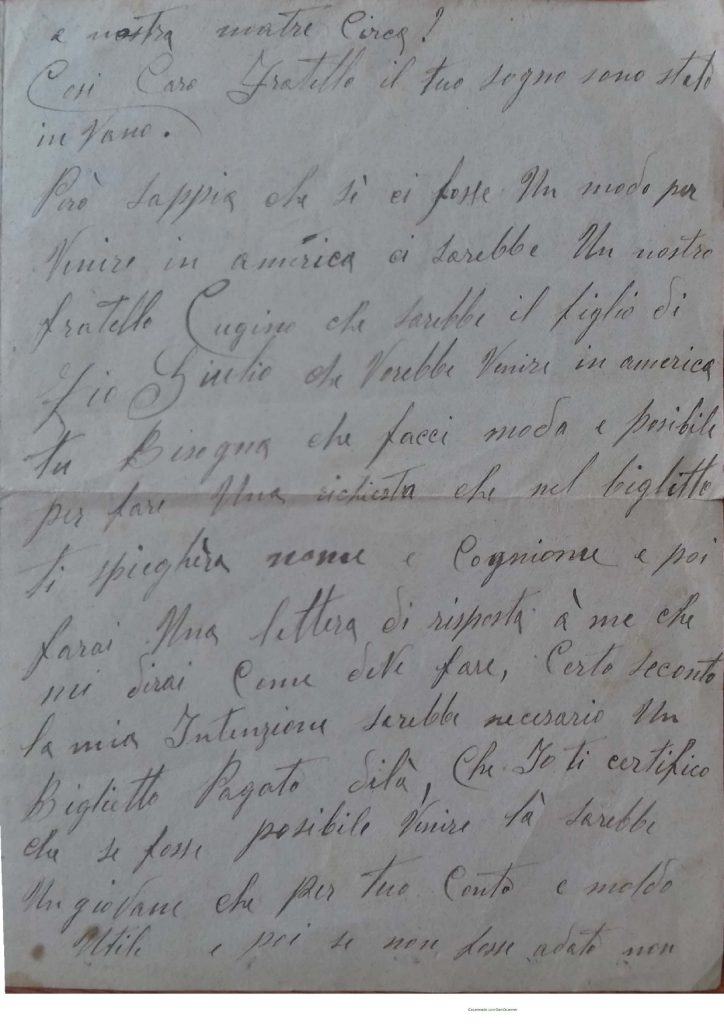 a nostra matre Circa?
Cosi Caro Fratello il tuo sogno sono stato
in Vano.
Però sappia che sì ci fosse Un modo per
Venire in america ci sarebbe Un nostro
fratello Cugino che sarebbe il figlio di
Zio Giulio che Vorebbe Venire in america
tu Bisogna che facci moda e posibile
per fare Una richiesta che nel biglitto
ti spieghèra nome e Cognione e poi
farai Una lettera di risposta à me che
mi dirai Come deve fare, Certo seconto
la mia Intenzione sarebbe necesario Un
Biglietto Pagato dilà, Che Io ti certifico
che se fosse posibile Venire là sarebbe
Un giovane che per tuo Conto e moldo
Utile e poi se non fosse adato non